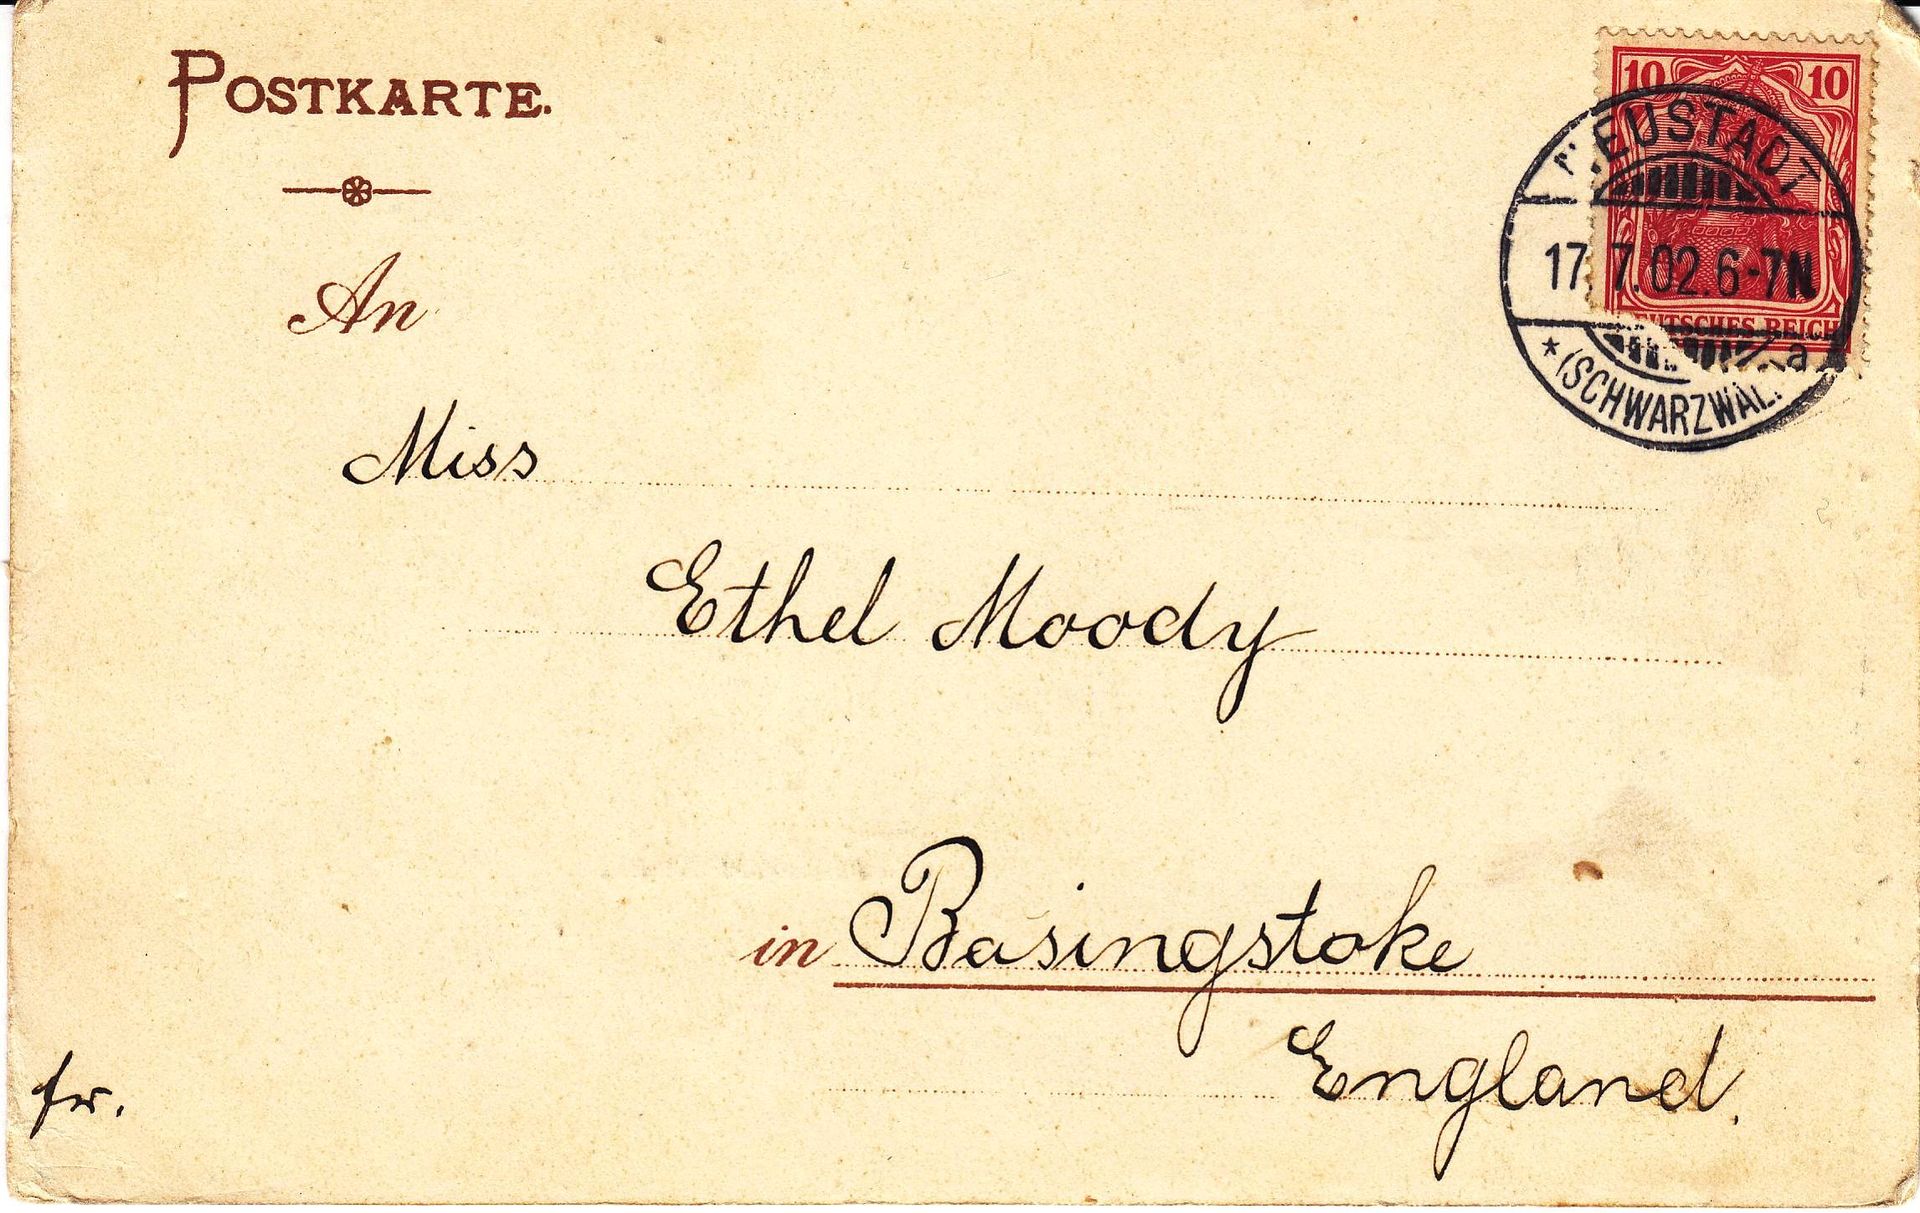 POSTKARTE.
10 10
NEUSTADT
17.7.02.6-7N
DEUTSCHES REICH
a
* (SCHWARZWAL
An
Miss
Ethel Moody
in Basingstoke
England.
fr.